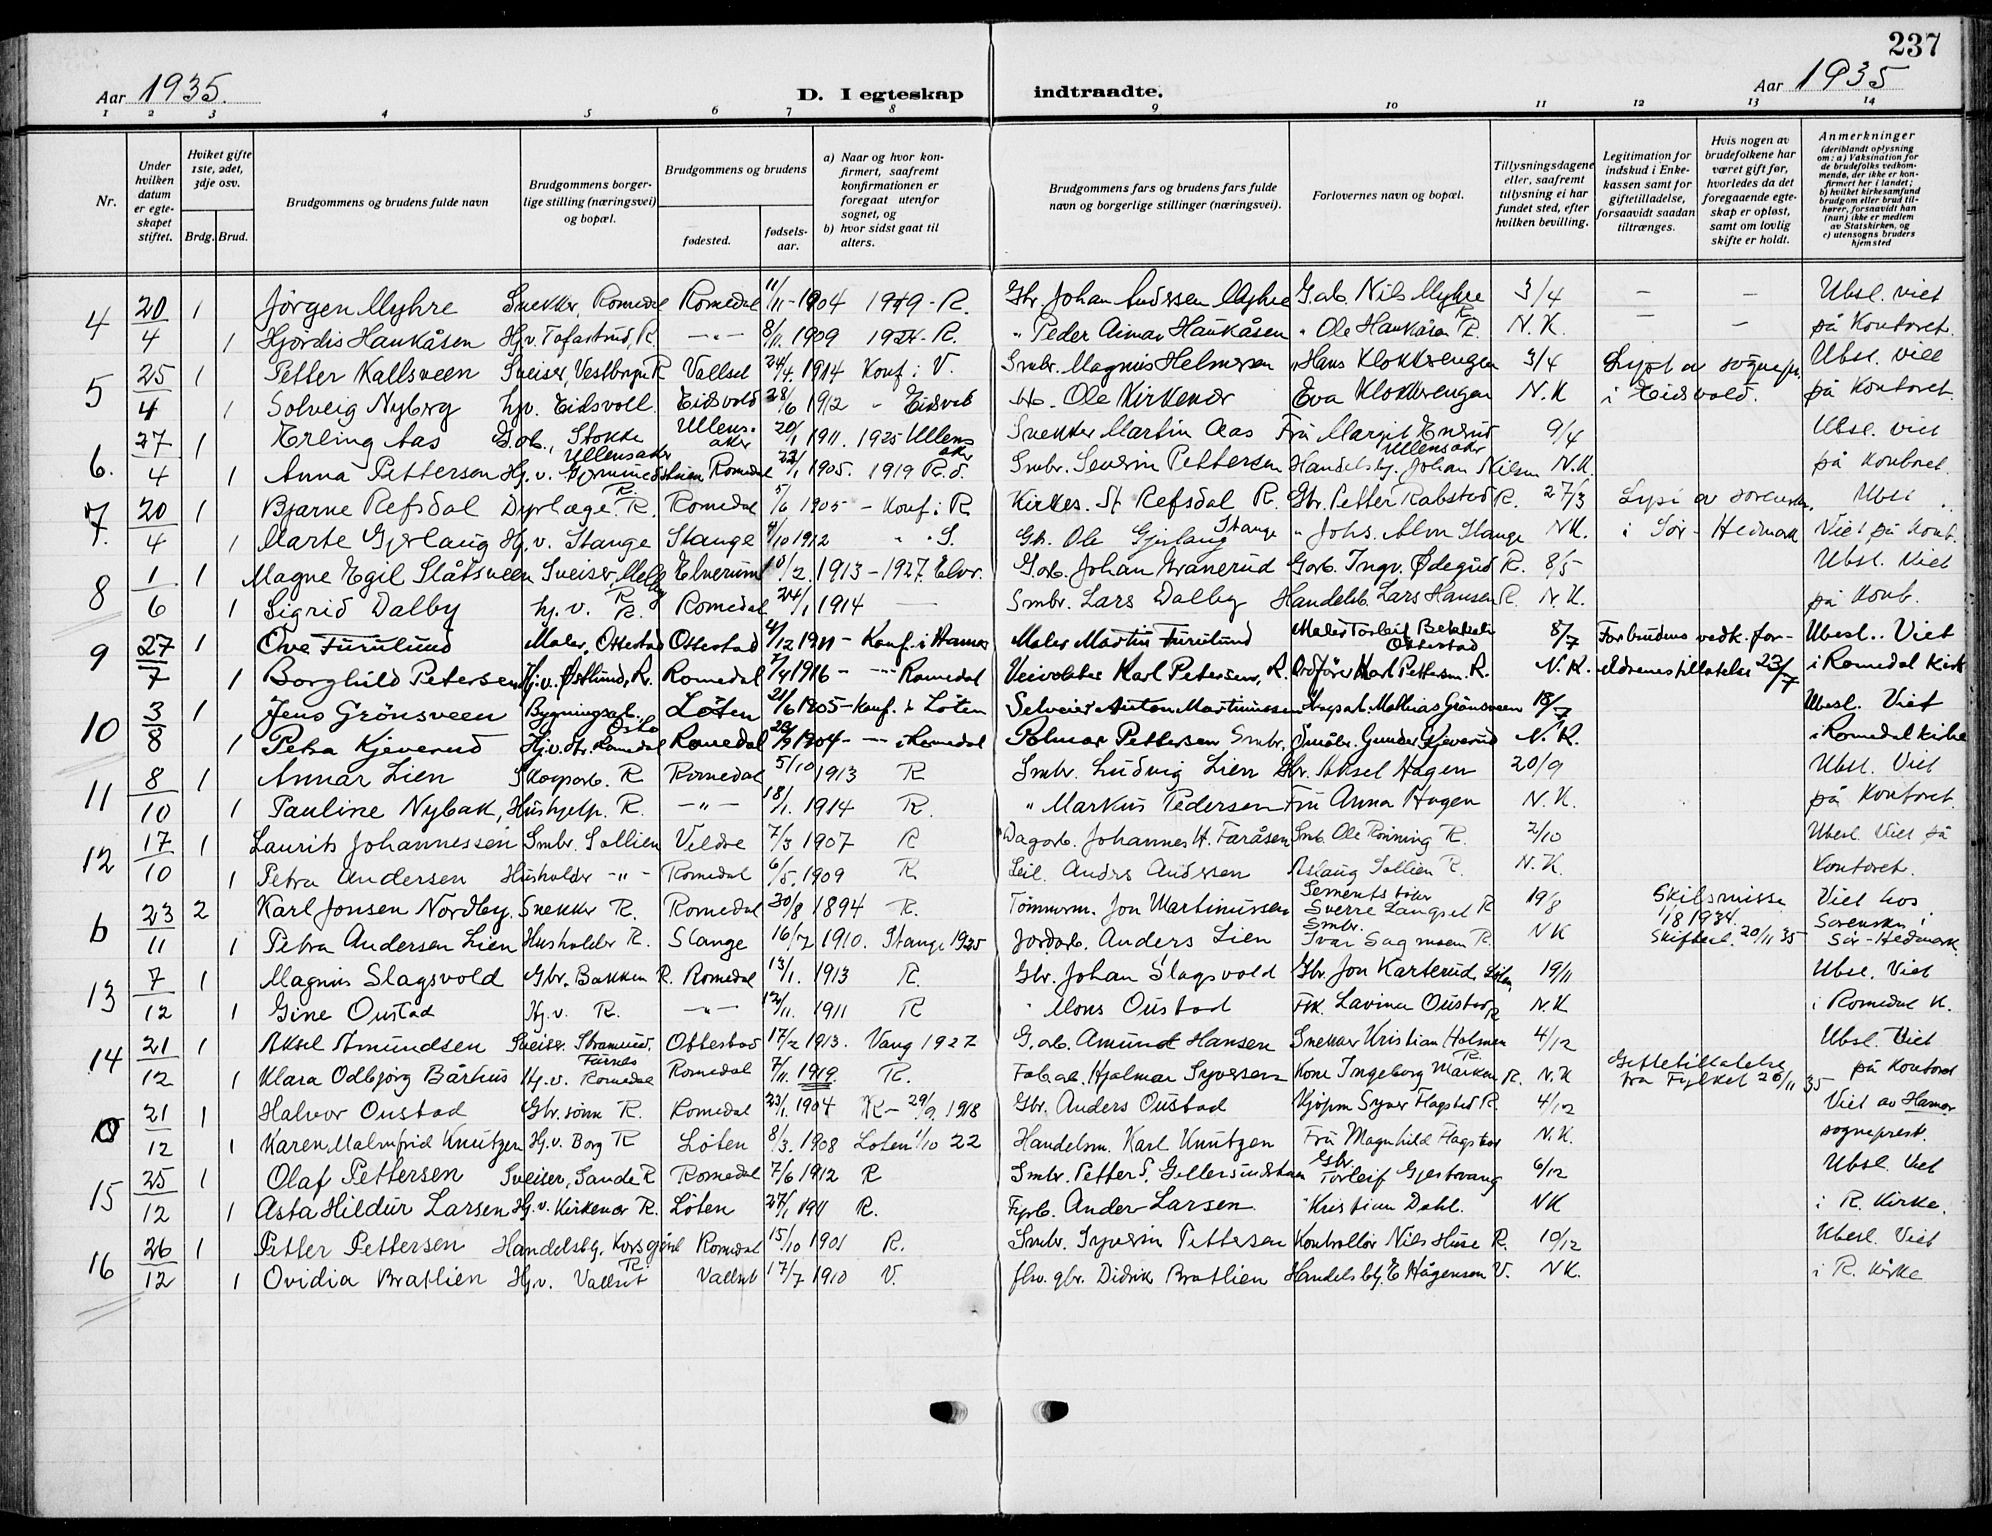 237
Aar 1935. D. I egteskap indtraadte. Aar 1935
1 2 3 4 5 6 7 8 9 10 11 12 13 14
Nr.
Under hvilken datum er egteskapet stiftet.
Hviket gifte 1ste, 2det, 3dje osv.
Brdg. Brud.
Brudgommens og brudens fulde navn
Brudgommens borgerlige stilling (næringsvei) og bopæl.
Brudgommens og brudens
fødested.
fødselsaar.
a) Naar og hvor konfirmert, saafremt konfirmationen er foregaat utenfor sognet, og
b) hvor sidst gaat til alters.
Brudgommens fars og brudens fars fulde navn og borgerlige stillinger (næringsvei).
Forlovernes navn og bopæl.
Tillysningsdagene eller, saafremt tillysning ei har fundet sted, efter hvilken bevilling.
Legitimation for indskud i Enkekassen samt for giftetilladelse, forsaavidt saadan tiltrænges.
Hvis nogen av brudefolkene har været gift før, hvorledes da det foregaaende egteskap er opløst, samt om lovlig skifte er holdt.
Anmerkninger (deriblandt oplysning om: a) Vaksination for de brudefolks vedkommende, der ikke er konfirmert her i landet; b) hvilket kirkesamfund brudgom eller brud tilhører, forsaavidt han (hun) ikke er medlem av Statskirken, og c) utensogns bruders hjemsted
4 20/4 1 Jørgen Myhre Snekker, Romedal Romedal 11/11-1904 1919 - R. Gbr. Johan Anderssen Myhre G.ab. Nils Myhre R. 3/4 — — Ubsl. viet
1 Hjørdis Haukåsen Hj.v. Tofastrud, R. —"— 8/11 1909 1924 - R. " Peder Aimar Haukåsen " Ole Haukåsen R. N.K. — — på Kontoret.
5 25/4 1 Petter Kallsveen Sveiser, Vestbygn R Vallset 24/4. 1914 Konf. i V. Smbr. Magnus Helmersen Hans Klokkerengen 3/4 Lyst av sognepr. Ubsl. viet
1 Solveig Nyberg hjv. Eidsvoll. Eidsvold 28/6 1912 - Eidsvold Ole Kirkenær Eva Klokkerengen N.K i Eidsvold. på Kontoret.
6. 27/4 1 Erling Aas G.ab., Stokke Ullensaker Ullensaker 20/1 1911. 1925 Ullensaker Snekker Martin Aas Fru Margit Enerud Ullensaker 9/4 Ubsl. viet
1 Anna Pettersen Hj.v. R. Romedal 22/1 1905. 1919 R.S. Smbr. Severin Pettersen Handelsbj. Johan Nilsen N.K. på Kontoret.
7. 20/4 1 Bjarne Refsdal Dyrlæge. R. Romedal 5/6 1905 - Konf. i R Kirkes. St Refsdal R. Gbr. Petter Rabstad R. 27/3 Lyst av sorenskr. Ubsl.
1 Marte Gjerlaug Hj.v. Stange Stange 4/10 1912 " " S. Gbr. Ole Gjerlaug Stange " Johs. Alm Stange NK. i Sør-Hedmark Viet på Kont.
8 1/6 1 Magne Egil Slåtsveen Sveiser, Melby R Elverum 10/2. 1913 - 1927. Elvr. G.ab. Johan Granerud Garb. Ingv. Ødegård R. 8/5 Ubsl. Viet
1 Sigrid Dalby hj.v. R. Romedal 24/1 1914 — Smbr. Lars Dalby Handelsb. Lars Hansen R. N.K. på Kont.
9 27/7 1 Ove Furulund Maler, Ottestad Ottestad 4/12 1911 - Konf. i Hamar Maler Martin Furulund Maler Torleif Bekkeli Ottestad 8/7 Forbudens vedk. for- Ubesl.. Viet
1 Borghild Petersen Hj.v. Østlund, R. Romedal 7/4 1916 - —"— Romedal Veivokter Karl Petersen, R. Ordfører Karl Pettersen. R. N.K. eldrenes tillatelse 23/7 i Romedal Kirk
10 3/8 1 Jens Grönsveen Bygningsarb. Oslo Løten 21/6 1905 - Konf. i Löten Selveier Anton Martinussen Skogsarb. Mathias Grönsveen 18/7 Ubesl. Viet
1 Petra Kjeverud Hj.v. Str. Romedal Romedal 20/9 1904 - — i Romedal Polmar Pettersen Smbr. Småbr. Gunder Kjeverud N.K. i Romedal Kirke
11 8/10 1 Annar Lien Skogsarb. R Romedal 5/10 1913 R Smbr. Ludvig Lien Gbr. Aksel Hagen 20/9 Ubsl. Viet
1 Pauline Nybak, Hushjelp. R. —"— 18/1. 1914 R. " Markus Pedersen Fru Anna Hagen N.K. på Kontoret.
12 17/10 1 Laurits Johannessen Smbr. Sollien Veldre 7/3 1907 R Dagarb. Johannes H. Faråsen Smb. Ole Rønning R. 2/10 Ubesl. Viet på
1 Petra Andersen Husholder —"— Romedal 6/5. 1909 R. Seil. Anders Andersen Aslaug Sollien R. N.K. Kontoret.
b 23/11 2 Karl Jonsen Nordby. Snekker R. Romedal 30/8 1894 R. Tømmerm. Jon Martinussen Sementstøter Sverre Langset R 19/8 Skilsmisse 1/8 1934. Viet hos
1 Petra Andersen Lien Husholder R. Stange 16/7 1910. Stange 1925 Jordarb. Anders Lien Smbr. Ivar Sagmoen R. NK Skifteerkl. 20/11 35 Sorenskr. i Sør-Hedmark.
13 7/12 1 Magnus Slagsvold Gbr. Bakken R. Romedal 13/1. 1913 R. Gbr. Johan Slagsvold Gbr. Jon Karterud Løten 19/11 Ubsl. Viet
1 Gine Oustad Hj.v. R. —"— 12/11. 1911 R " Mons Oustad Frk. Lavina Oustad R N.K i Romedal K.
14 21/12 1 Aksel Amundsen Sveiser. Stramrud. Furnes Ottestad 17/2 1913. Vang 1927 G.ab. Amund Hansen Snekker Kristian Holmen R. 4/12 Ubsl. Viet
1 Klara Odbjørg Bårhus Hj.v. Romedal Romedal 7/11. 1919. R. Fab.ab. Hjalmar Syversen Kone Ingeborg Marken R. N.K Giftetillatelse fra Fylket 26/11 35 på Kontoret
21/12 1 Halvor Oustad Gbr.sønn R. Romedal 23/1. 1904 R - 29/9. 1918 Gbr. Anders Oustad Kjøpm Syver Flagstad R. 4/12 Viet av Hamar
1 Karen Malmfrid Knutzen Hj.v. Borg R Løten 8/3. 1908 Løten 1/10 22 Handelsm. Karl Knutzen Fru Magnhild Flagstad N.K. sogneprest.
15 25/12 1 Olaf Pettersen Sveiser, Sande R Romedal 7/6 1912 R Smbr. Petter S. Gillersundstuen Gbr. Torleif Gjestvang 6/12 Ubsl. Viet
1 Asta Hildur Larsen Hj.v. Kirkenær R. Löten 27/1 1911 R. Anders Larsen. " Kristian Dahl. NK i R. Kirke.
16 26/12 1 Petter Pettersen Handelsbj. R Romedal 15/10 1901 R. Smbr. Syverin Pettersen Kontrollør Nils Huse R. 10/12 Ubesl. Viet
1 Ovidia Bratlien Hj.v. Vallset Vallset 17/7 1910 V. fhv. gbr. Didrik Bratlien Handelsbtj. E Hågensen V. NK. i R. Kirke